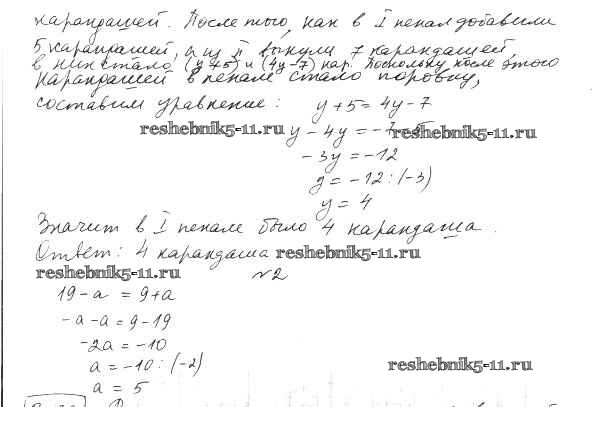 карандашей. После того, как в I пенал добавили
5 карандашей, а из II вынули 7 карандашей,
в них стало (y+5) и (4y-7) кар. Поскольку после этого
карандашей в пенале стало поровну,
составим уравнение: y+5=4y-7
reshebnik5-11.ru y-4y=-7-5 reshebnik5-11.ru
-3y=-12
y=-12:(-3)
y=4
Значит в I пенале было 4 карандаша.
Ответ: 4 карандаша reshebnik5-11.ru
reshebnik5-11.ru №2
19-a=9+a
-a-a=9-19
-2a=-10
a=-10:(-2) reshebnik5-11.ru
a=5